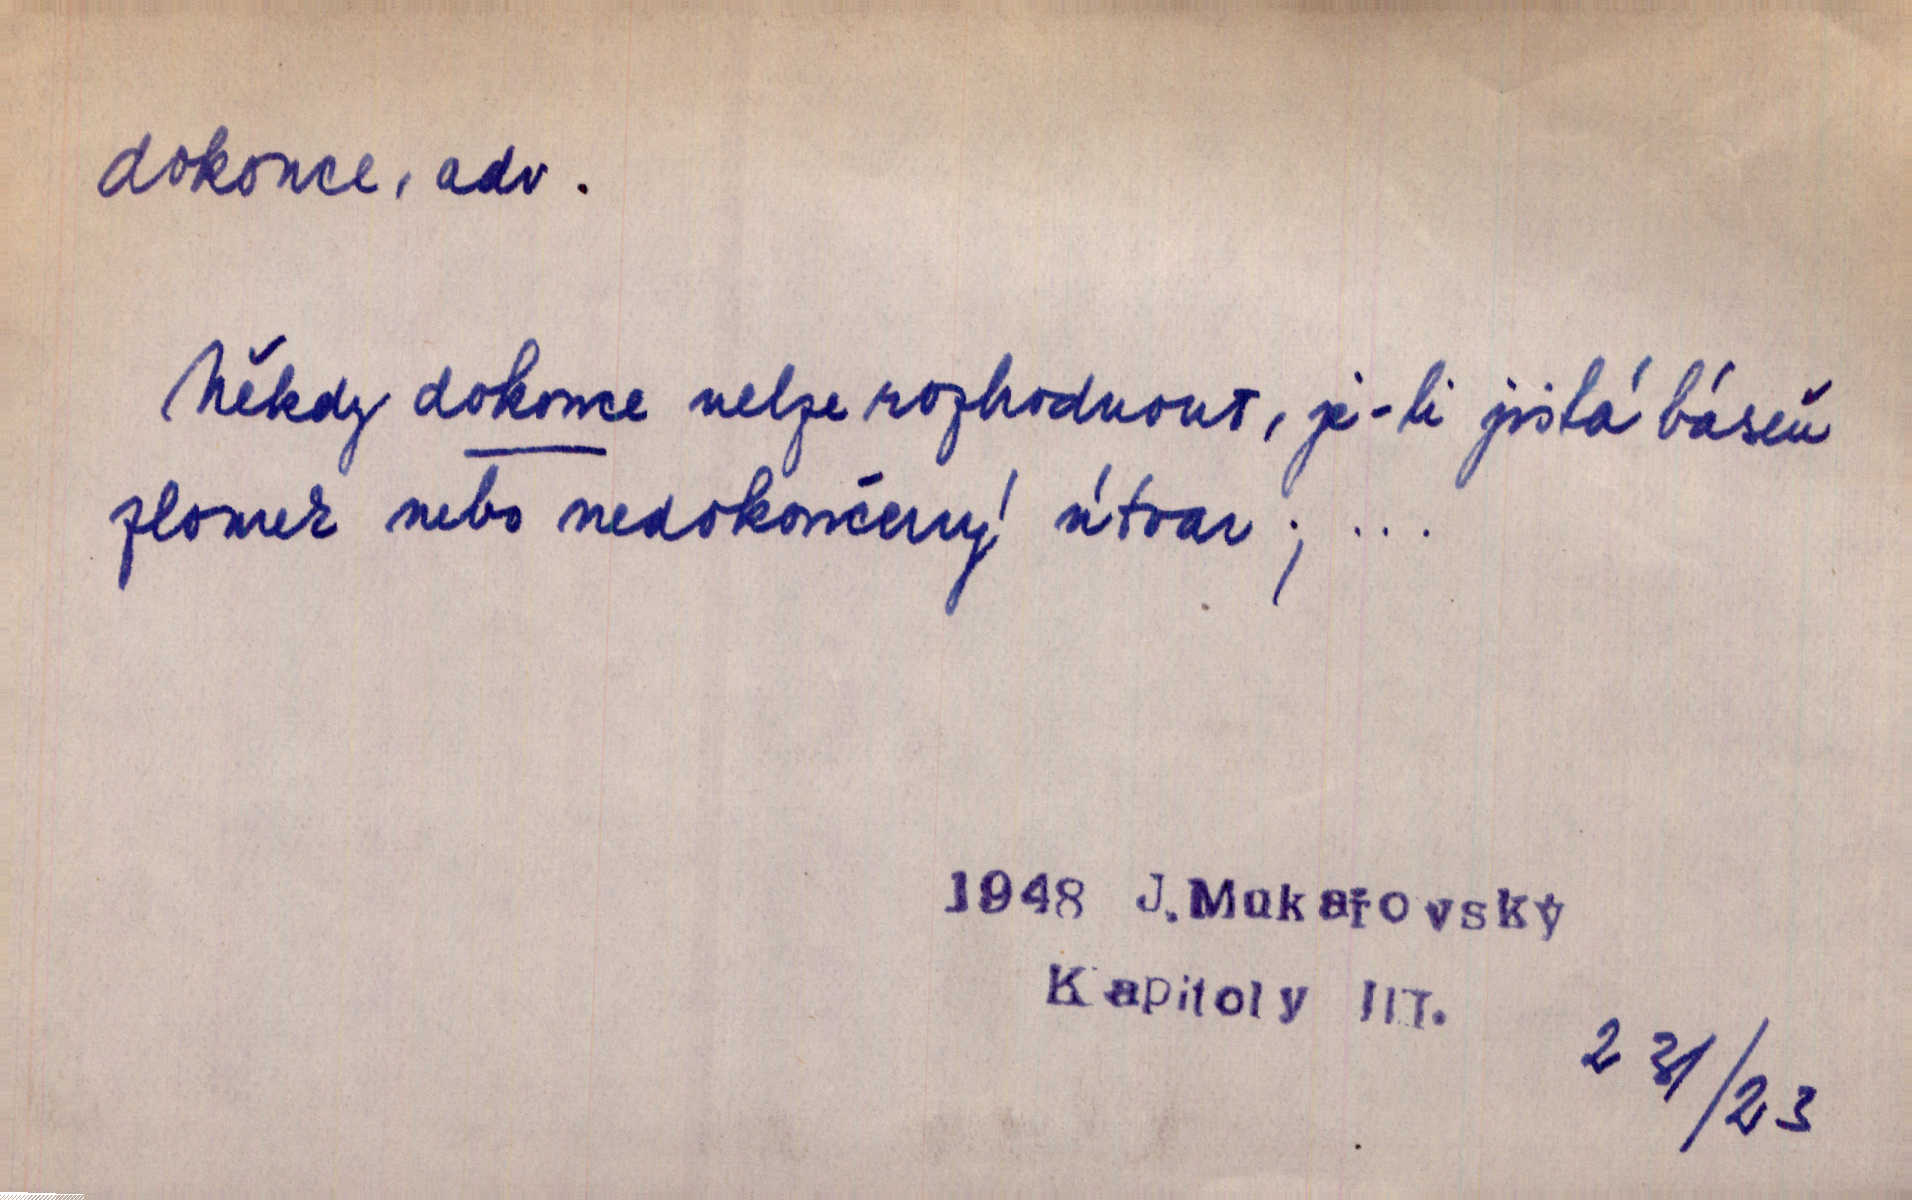 dokonce, adv.
Někdy dokonce nelze rozhodnout, je-li jistá báseň
zlomek nebo nedokončený útvar; ...
1948 J. Mukařovský
Kapitoly III.
231/23